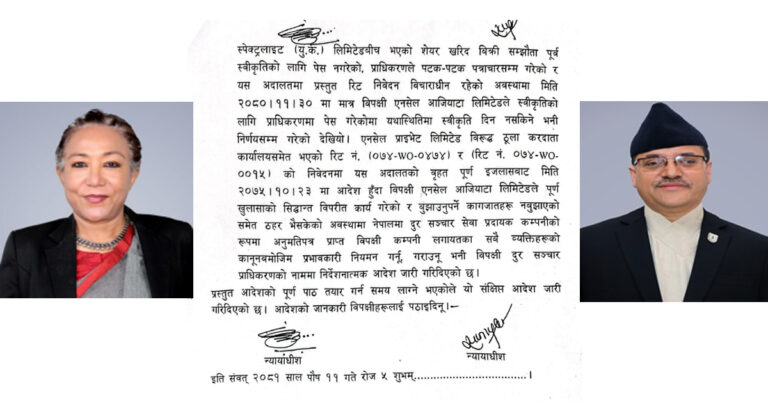 स्पेक्ट्रलाइट (यु.के.) लिमिटेडबीच भएको शेयर खरिद बिक्री सम्झौता पूर्व
स्वीकृतिको लागि पेस नगरेको, प्राधिकरणले पटक-पटक पत्राचारसम्म गरेको र
यस अदालतमा प्रस्तुत रिट निवेदन बिचाराधीन रहेको अवस्थामा मिति
२०८०।११।३० मा मात्र विपक्षी एनसेल आजियाटा लिमिटेडले स्वीकृतिको
लागि प्राधिकरणमा पेस गरेकोमा यथास्थितिमा स्वीकृति दिन नसकिने भनी
निर्णयसम्म गरेको देखियो। एनसेल प्राइभेट लिमिटेड विरूद्ध ठूला करदाता
कार्यालयसमेत भएको रिट नं. (०७४-WO-०४७४) र (रिट नं. ०७४-WO-
००१५) को निवेदनमा यस अदालतको बृहत पूर्ण इजलासबाट मिति
२०७५।१०।२३ मा आदेश हुँदा विपक्षी एनसेल आजियाटा लिमिटेडले पूर्ण
खुलासाको सिद्धान्त विपरीत कार्य गरेको र बुझाउनुपर्ने कागजातहरू नबुझाएको
समेत ठहर भैसकेको अवस्थामा नेपालमा दुर सञ्चार सेवा प्रदायक कम्पनीको
रूपमा अनुमतिपत्र प्राप्त विपक्षी कम्पनी लगायतका सबै व्यक्तिहरूको
कानूनबमोजिम प्रभावकारी नियमन गर्नू, गराउनू भनी विपक्षी दुर सञ्चार
प्राधिकरणको नाममा निर्देशनात्मक आदेश जारी गरिदिएको छ।
प्रस्तुत आदेशको पूर्ण पाठ तयार गर्न समय लाग्ने भएकोले यो संक्षिप्त आदेश जारी
गरिदिएको छ। आदेशको जानकारी विपक्षीहरूलाई पठाइदिनू।–
न्यायाधीश न्यायाधीश
इति संवत् २०८१ साल पौष ११ गते रोज ५ शुभम्..............................।